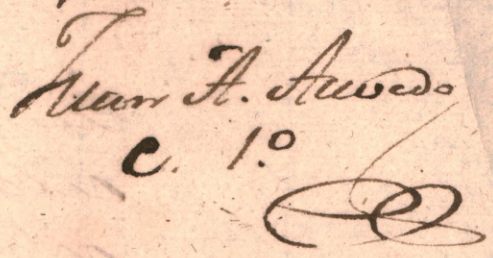 Juan A. Acevedo
C. 1.º